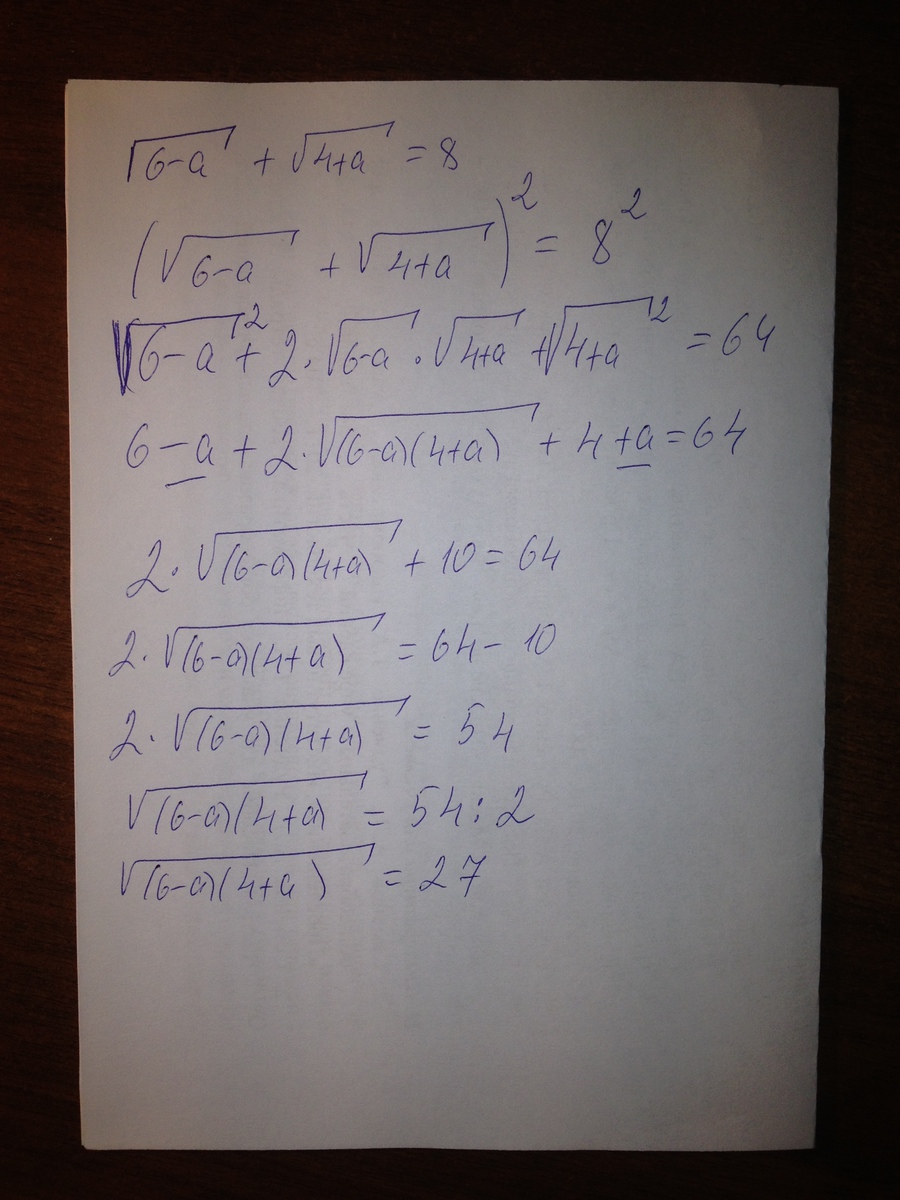 √6-a + √4+a = 8
(√6-a + √4+a)² = 8²
√6-a² + 2·√6-a · √4+a + √4+a² = 64
6-a + 2·√(6-a)(4+a) + 4+a = 64
2·√(6-a)(4+a) + 10 = 64
2·√(6-a)(4+a) = 64-10
2·√(6-a)(4+a) = 54
√(6-a)(4+a) = 54:2
√(6-a)(4+a) = 27